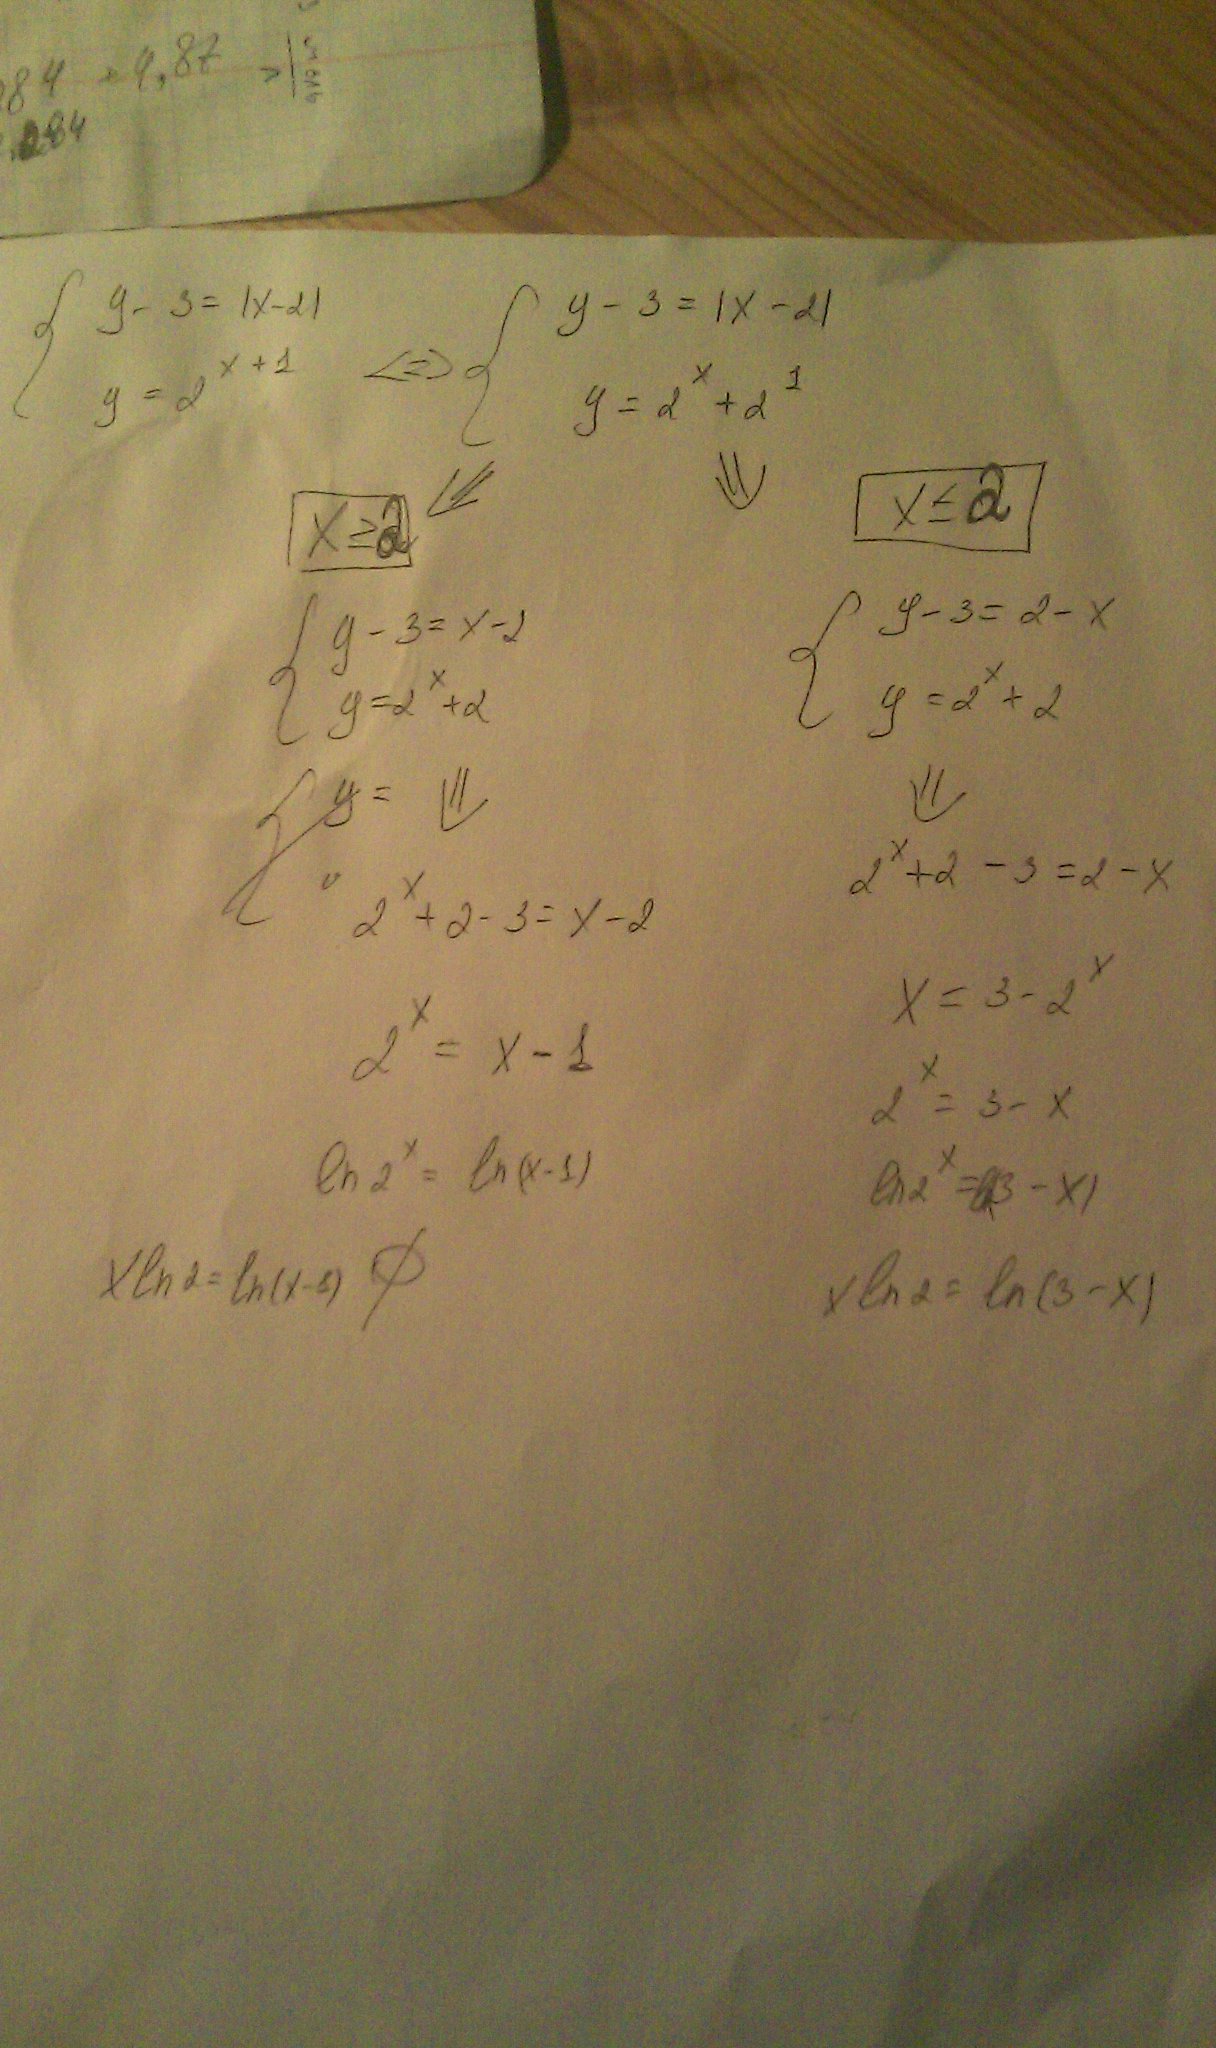 284 + 4,87 >
.284
y - 3 = |x - 2|
y = 2^{x + 1}
<=>
y - 3 = |x - 2|
y = 2^x + 2^1
x ≥ 2
y - 3 = x - 2
y = 2^x + 2
y =
2^x + 2 - 3 = x - 2
2^x = x - 1
ln 2^x = ln(x - 1)
x ln 2 = ln(x - 1) ∅
x ≤ 2
y - 3 = 2 - x
y = 2^x + 2
2^x + 2 - 3 = 2 - x
x = 3 - 2^x
2^x = 3 - x
ln 2^x = (3 - x)
x ln 2 = ln(3 - x)